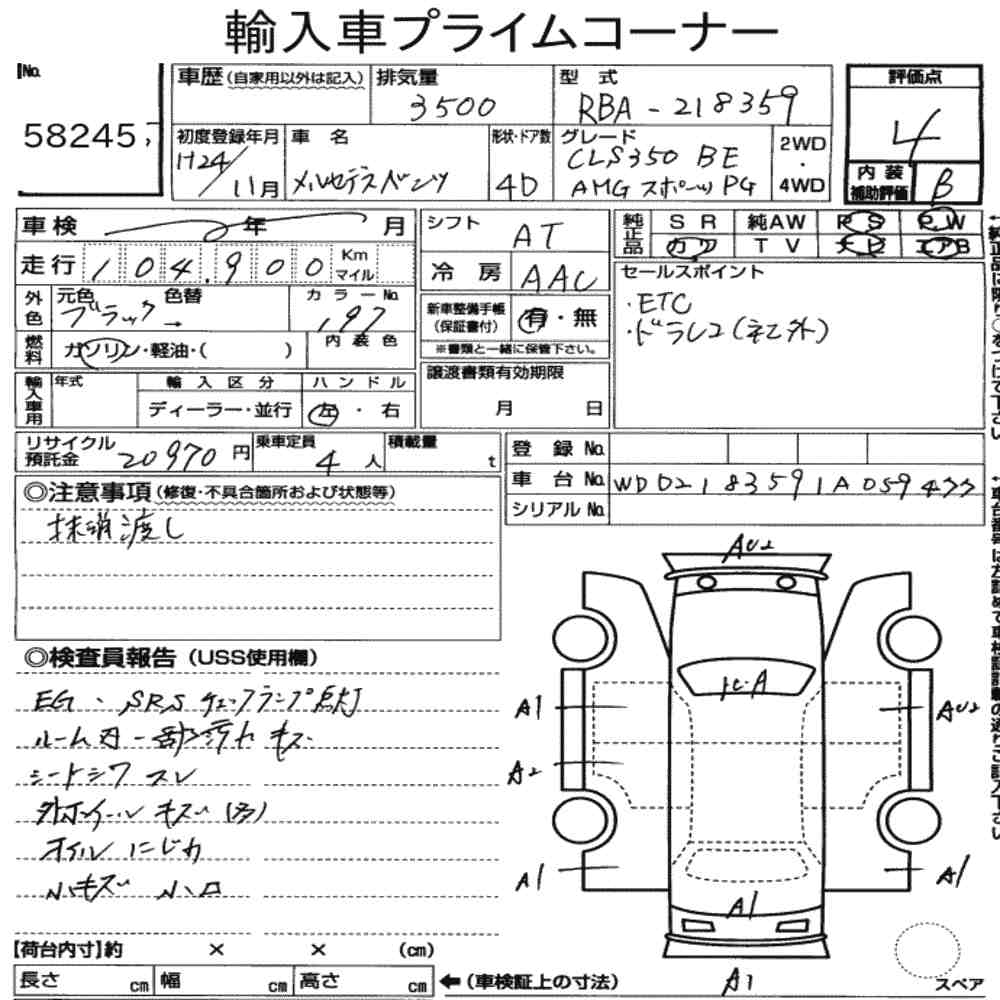 輸入車プライムコーナー
No.
58245
車歴 (自家用以外は記入)
排気量
3500
型式
RBA-218359
評価点
4
初度登録年月
H24/11月
車名
メルセデスベンツ
形状・ドア数
4D
グレード
CLS350 BE
AMG スポーツ PG
2WD
・
4WD
内装
補助評価
B
車検 年 月
シフト
AT
純正品
SR 純AW PS PW
カワ TV ナビ エアB
走行 104,900 Km マイル
冷房
AAC
セールスポイント
・ETC
・ドラレコ(社外)
外色
元色 色替
ブラック→
カラーNo.
197
新車整備手帳
(保証書付)
有・無
※書類と一緒に保管下さい。
燃料
ガソリン・軽油・( )
内装色
輸入車用
年式
輸入区分
ディーラー・並行
ハンドル
左・右
譲渡書類有効期限
月 日
リサイクル
預託金 20970円
乗車定員
4人
積載量
t
登録No.
車台No. WDD2183591A059477
シリアルNo.
◎注意事項(修復・不具合箇所および状態等)
抹消渡し
◎検査員報告(USS使用欄)
EG・SRSチェックランプ点灯
ルーム内一部汚れキズ
シートシワ スレ
外ホイールキズ(多)
オイルにじみ
小キズ 小凹
AU2
ヒ・A
A1
AU2
A2
A1
A1
A1
A1
スペア
【荷台内寸】約 × × (cm)
長さ cm 幅 cm 高さ cm
←(車検証上の寸法)